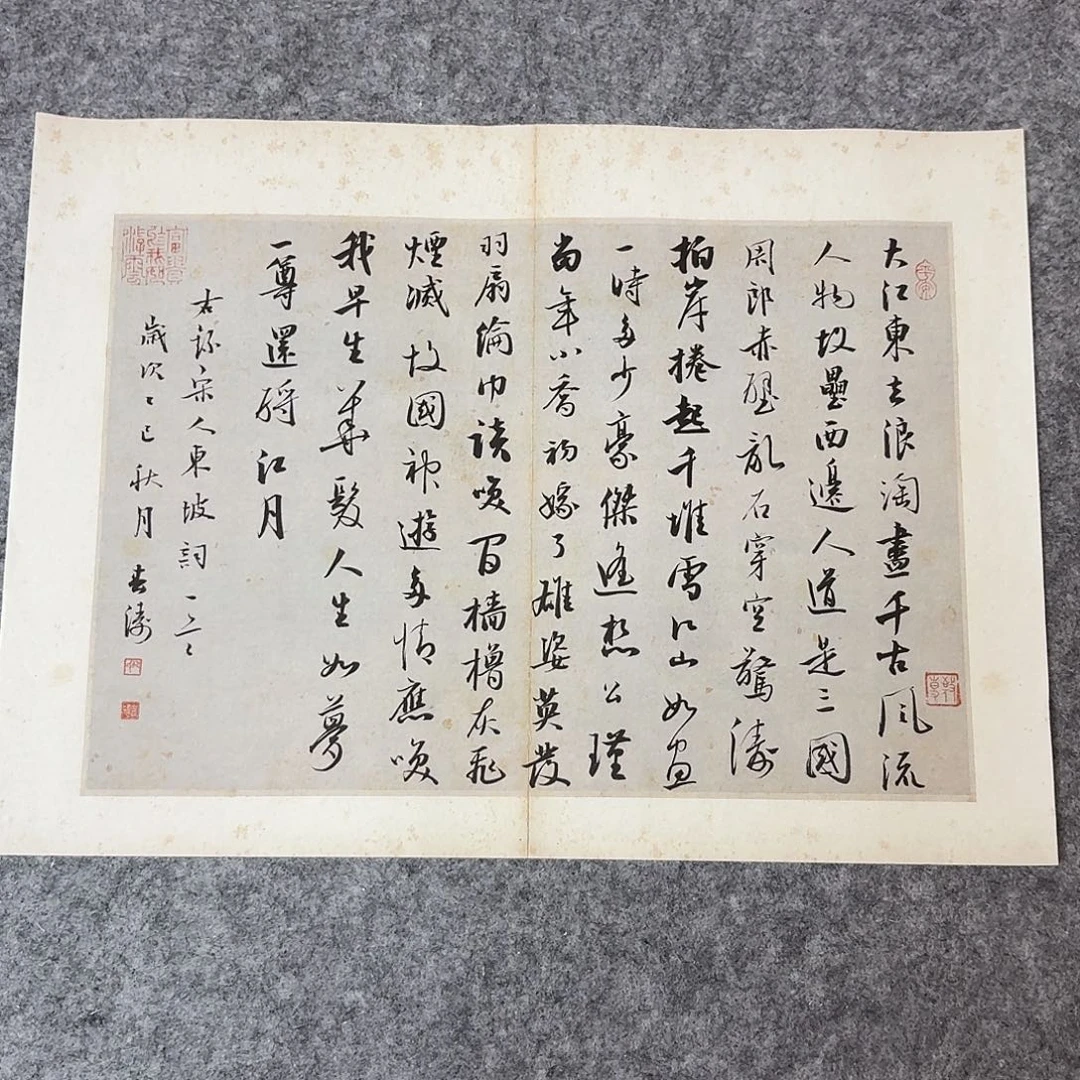 大江東去浪淘盡千古風流
人物故壘西邊人道是三國
周郎赤壁亂石穿空驚濤
拍岸捲起千堆雪江山如畫
一時多少豪傑遙想公瑾
當年小喬初嫁了雄姿英發
羽扇綸巾談笑間檣櫓灰飛
煙滅故國神遊多情應笑
我早生華髮人生如夢
一尊還酹江月
右錄宋人東坡詞一首
歲次乙巳秋月